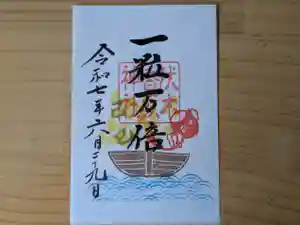 一粒万倍
令和七年六月二十九日